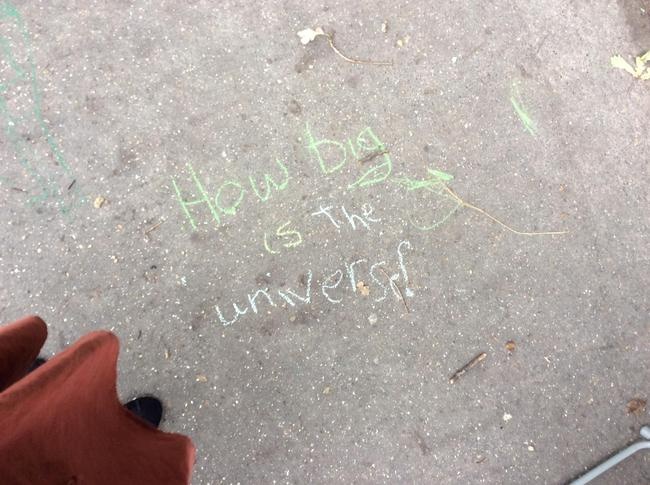 How big
is the
univers?